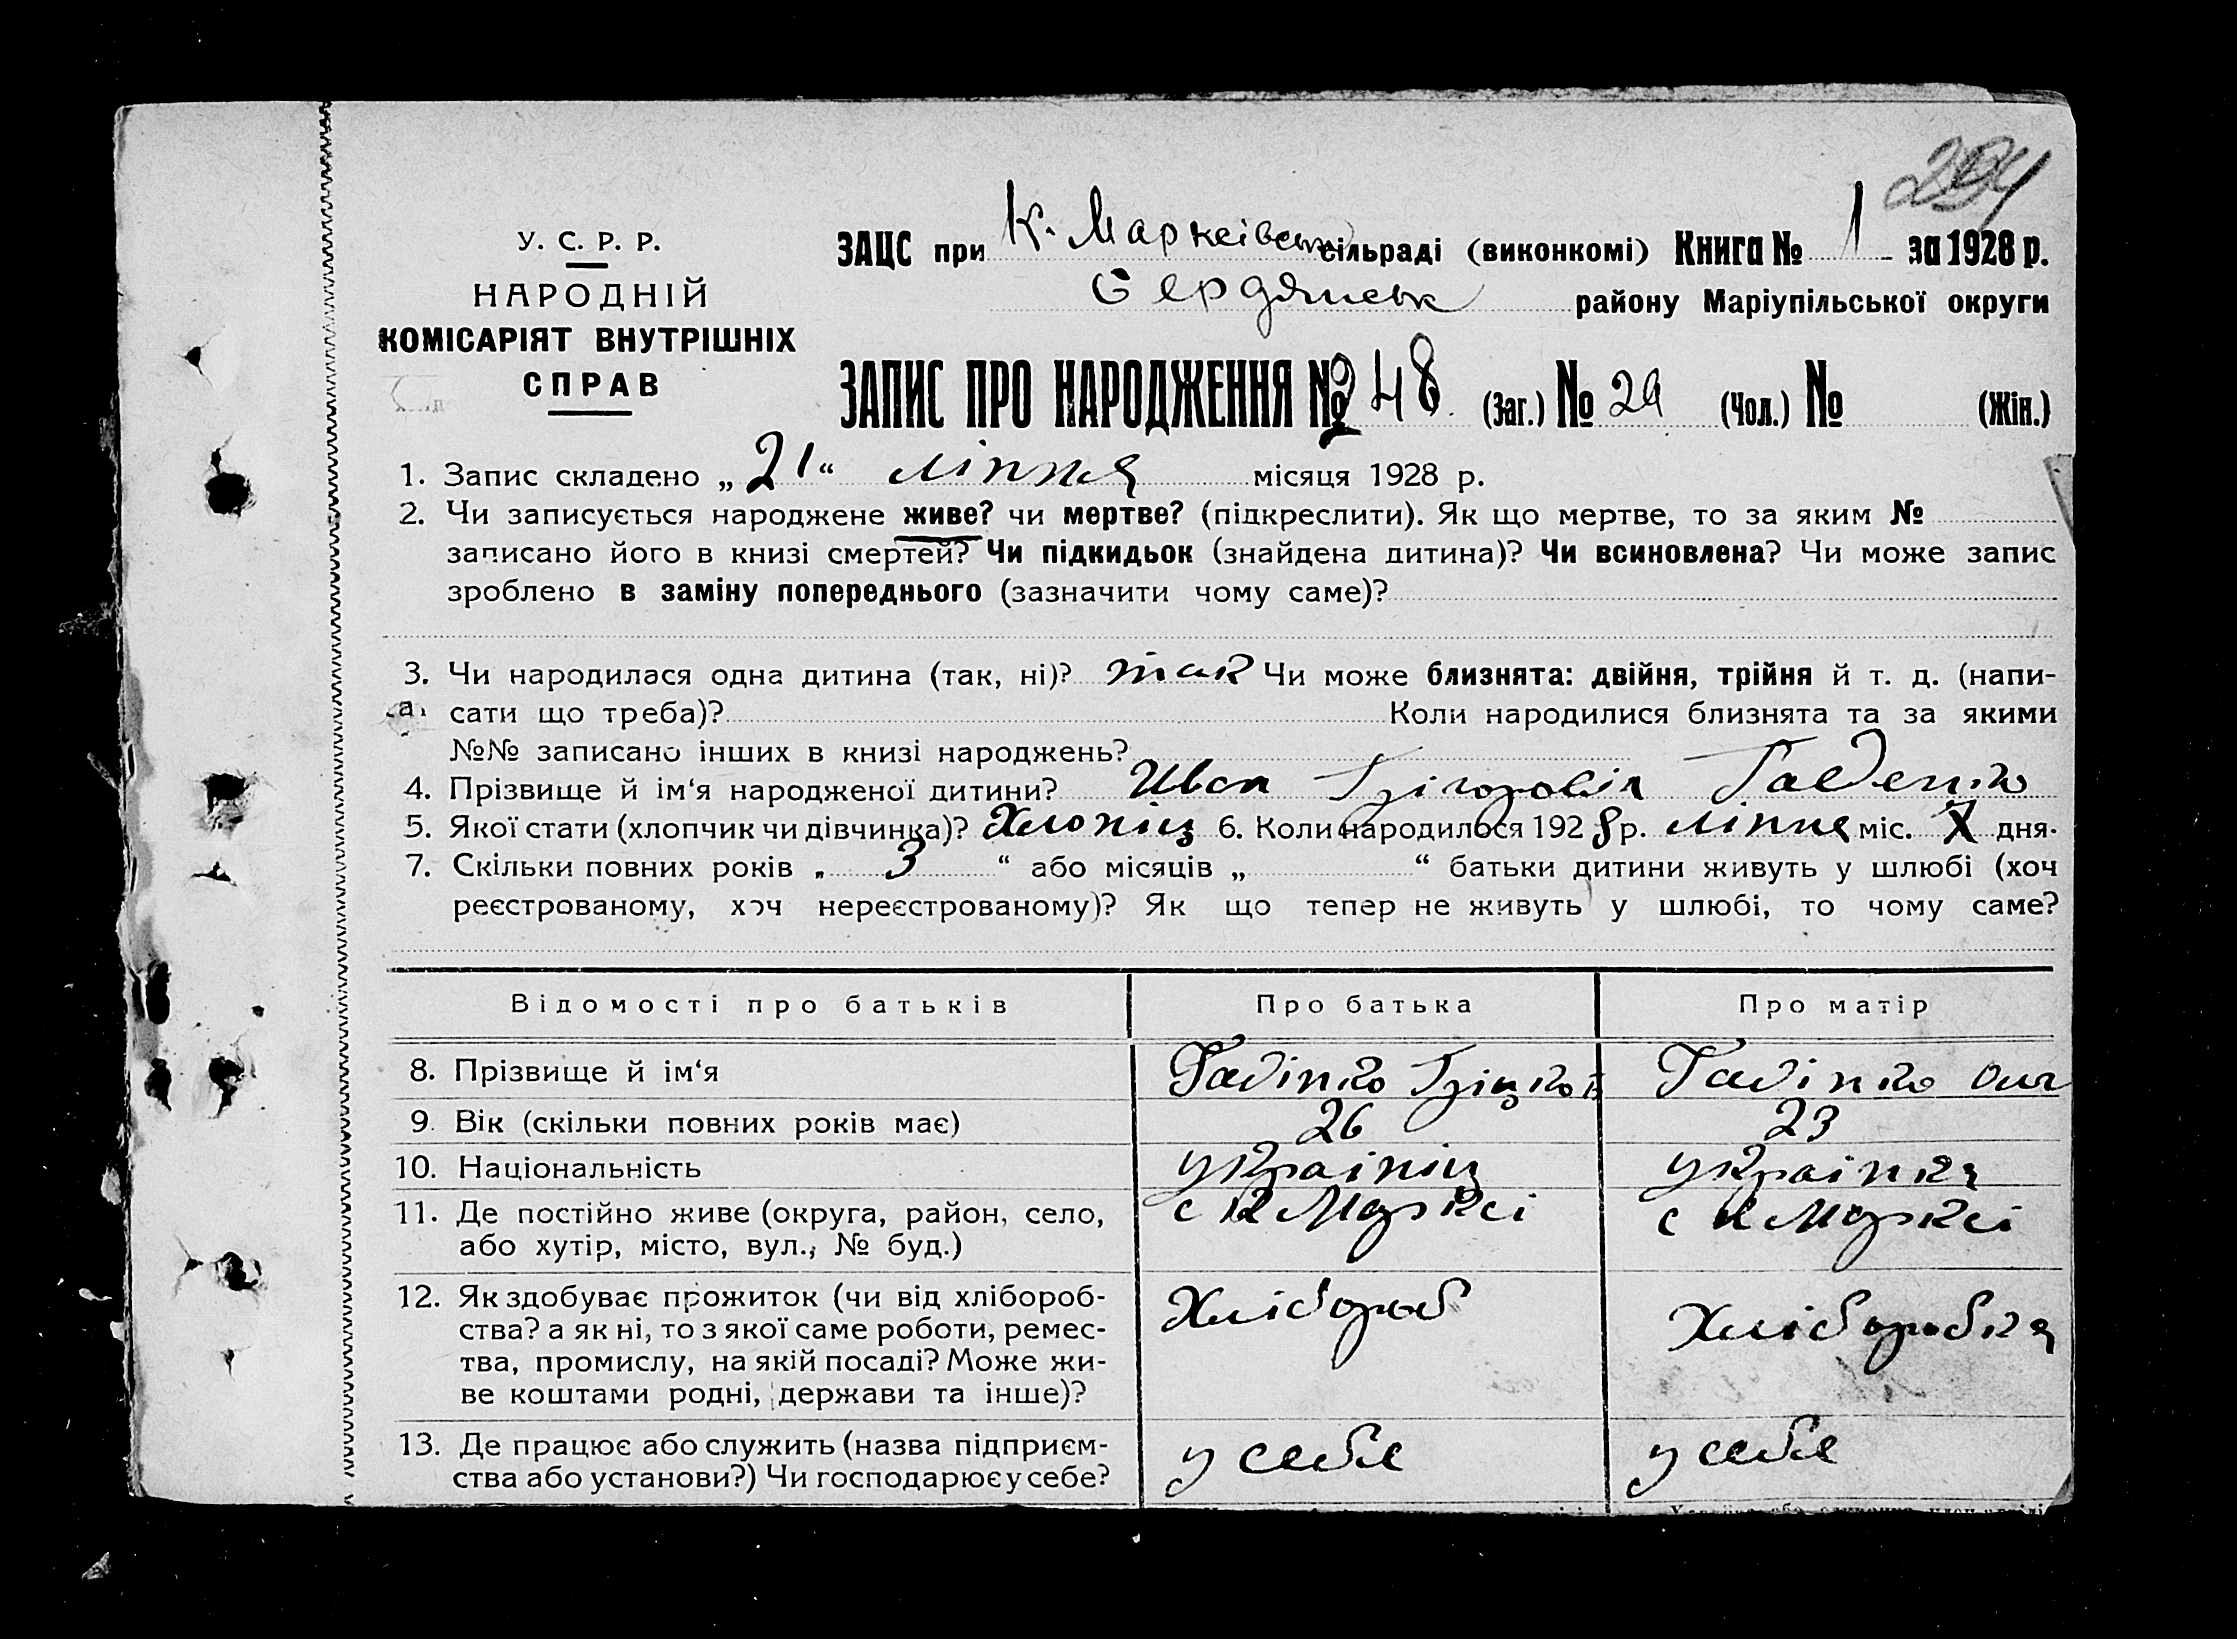 294
У. С. Р. Р.
НАРОДНІЙ
КОМІСАРІЯТ ВНУТРІШНІХ
СПРАВ
ЗАЦС при К. Марксівськ сільраді (виконкомі) Книга № 1 за 1928 р.
Бердянськ району Маріупільської округи
ЗАПИС ПРО НАРОДЖЕННЯ № 248 (Заг.) № (Чол.) № (Жін.)
1. Запис складено „21“ ліпня місяця 1928 р.
2. Чи записується народжене живе? чи мертве? (підкреслити). Як що мертве, то за яким №
записано його в книзі смертей? Чи підкидьок (знайдена дитина)? Чи всиновлена? Чи може запис
зроблено в заміну попереднього (зазначити чому саме)?
3. Чи народилася одна дитина (так, ні)? так Чи може близнята: двійня, трійня й т. д. (напи-
сати що треба)? Коли народилися близнята та за якими
№№ записано інших в книзі народжень?
4. Прізвище й ім‘я народженої дитини? Иван Грігоровіч
5. Якої стати (хлопчик чи дівчинка)? Хлопіц 6. Коли народилося 1928 р. ліпня міс. X дня.
7. Скільки повних років „ 3 “ або місяців „ “ батьки дитини живуть у шлюбі (хоч
реєстрованому, хоч нереєстрованому)? Як що тепер не живуть у шлюбі, то чому саме?
Відомості про батьків Про батька Про матір
8. Прізвище й ім‘я
9. Вік (скільки повних років має) 26 23
10. Національність украініц украінка
11. Де постійно живе (округа, район, село, с К Марксі с К Марксі
або хутір, місто, вул., № буд.)
12. Як здобуває прожиток (чи від хлібороб- Хлібороб Хліборобка
ства? а як ні, то з якої саме роботи, ремес-
тва, промислу, на якій посаді? Може жи-
ве коштами родні, держави та інше)?
13. Де працює або служить (назва підприєм- у себе у себе
ства або установи?) Чи господарює у себе?